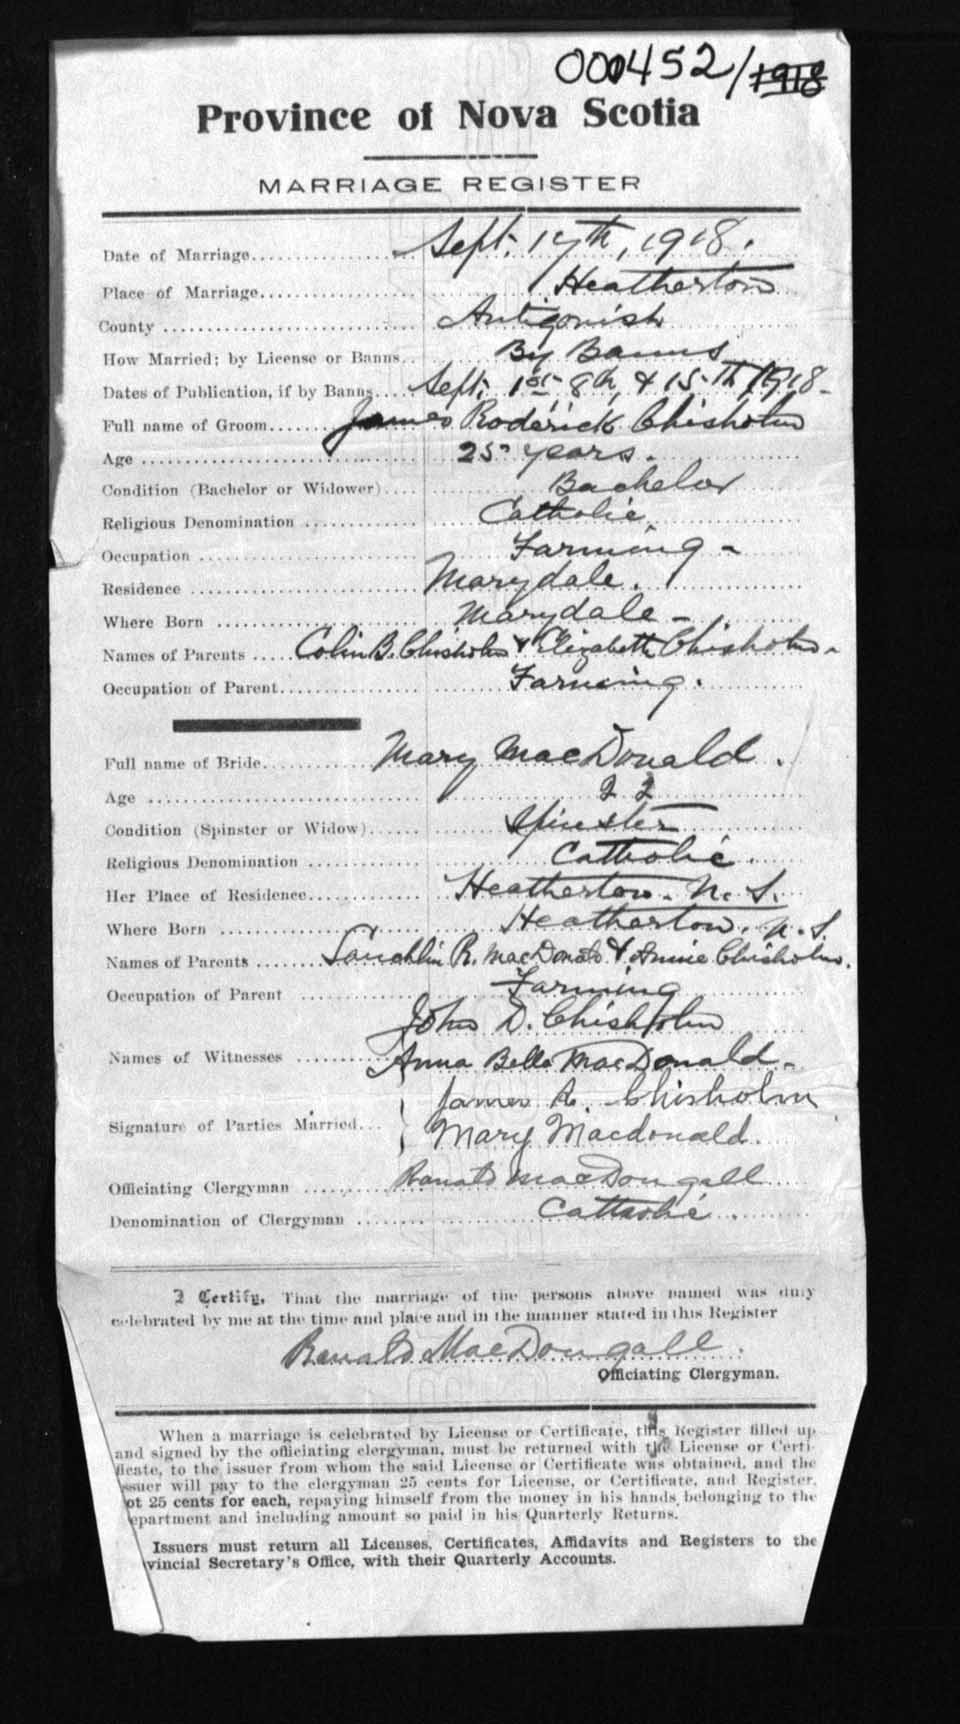 000452/1918
Province of Nova Scotia
MARRIAGE REGISTER
Date of Marriage Sept. 17th, 1918.
Place of Marriage Heatherton
County Antigonish
How Married; by License or Banns By Banns
Dates of Publication, if by Banns Sept. 1st 8th, & 15th 1918-
Full name of Groom James Roderick Chisholm
Age 25 years.
Condition (Bachelor or Widower) Bachelor
Religious Denomination Catholic
Occupation Farming -
Residence Marydale.
Where Born Marydale -
Names of Parents Colin B. Chisholm & Elizabeth Chisholm -
Occupation of Parent Farming.
Full name of Bride Mary MacDonald.
Age 22
Condition (Spinster or Widow) Spinster
Religious Denomination Catholic.
Her Place of Residence Heatherton. N. S.
Where Born Heatherton. N. S.
Names of Parents Lauchlin R. MacDonald & Annie Chisholm.
Occupation of Parent Farming
John D. Chisholm
Names of Witnesses Anna Belle MacDonald -
James R. Chisholm
Signature of Parties Married Mary Macdonald.
Officiating Clergyman Ronald MacDougall
Denomination of Clergyman Catholic.
I Certify, That the marriage of the persons above named was duly
celebrated by me at the time and place and in the manner stated in this Register
Ronald MacDougall.
Officiating Clergyman.
When a marriage is celebrated by License or Certificate, this Register filled up
and signed by the officiating clergyman, must be returned with the License or Certi-
ficate, to the issuer from whom the said License or Certificate was obtained, and the
issuer will pay to the clergyman 25 cents for License, or Certificate, and Register,
ot 25 cents for each, repaying himself from the money in his hands belonging to the
epartment and including amount so paid in his Quarterly Returns.
Issuers must return all Licenses, Certificates, Affidavits and Registers to the
vincial Secretary's Office, with their Quarterly Accounts.